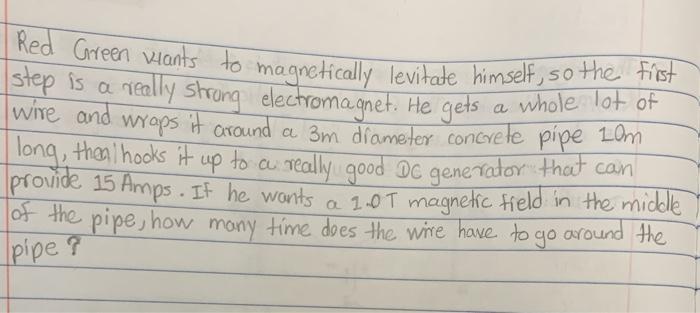 Red Green wants to magnetically levitate himself, so the first
step is a really strong electromagnet. He gets a whole lot of
wire and wraps it around a 3m diameter concrete pipe 10m
long, then hooks it up to a really good DC generator that can
provide 15 Amps. If he wants a 1.0T magnetic field in the middle
of the pipe, how many time does the wire have to go around the
pipe?